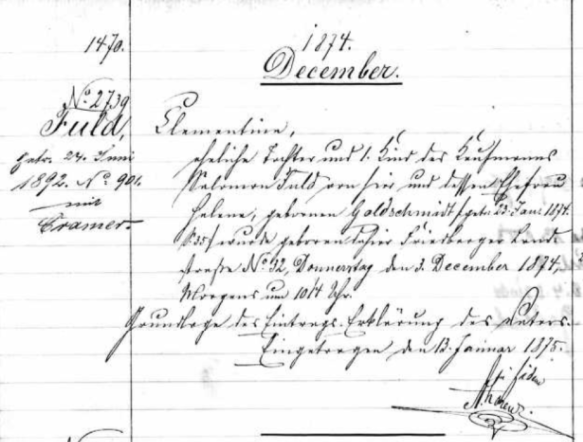 1470.
1874.
December.
No. 2739
Fuld,
getr. 24. Juni
1892. No. 901.
mit
Cramer.
Clementine,
eheliche Tochter und 1. Kind des Kaufmanns
Salomon Fuld von hier und dessen Ehefrau
Helene, geborenen Goldschmidt (getr. 23. Juni 1874.
wurde geboren dahier Friedberger Land-
straße No. 32, Donnerstag den 3. December 1874,
Morgens um 10 1/4 Uhr.
Grundlage des Eintrags: Erklärung des Vaters.
Eingetragen den 13. Januar 1875.